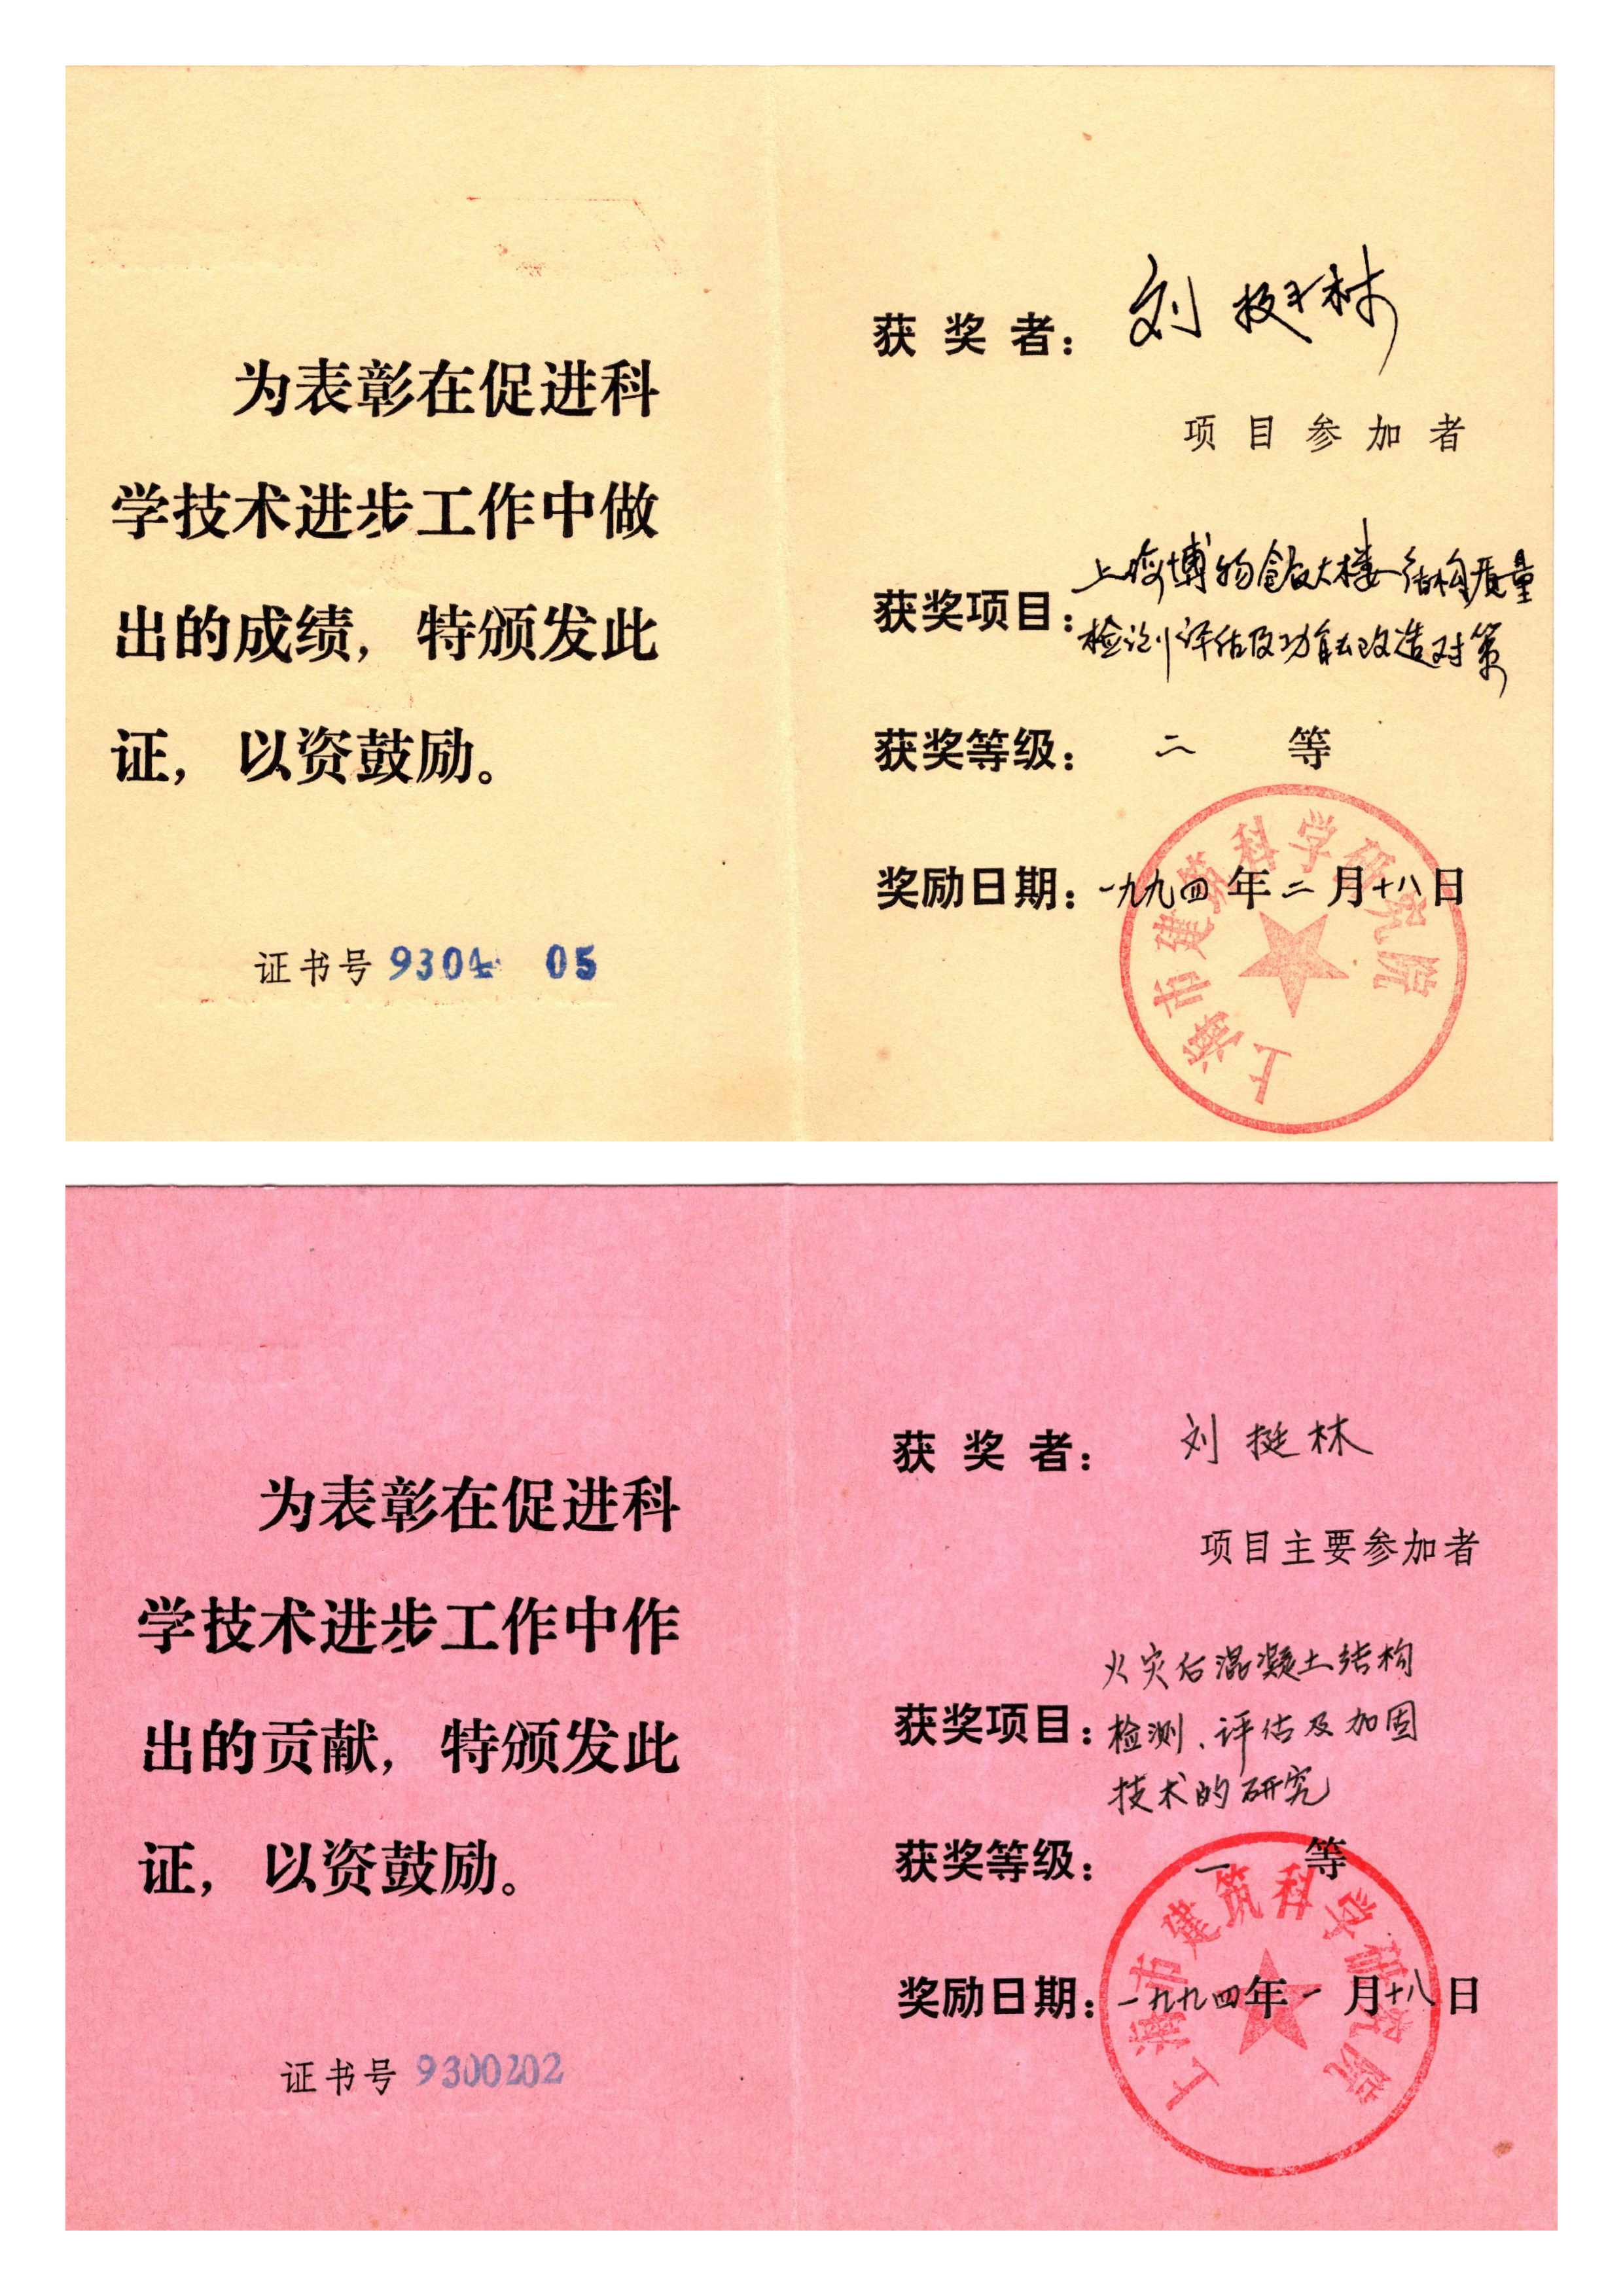 为表彰在促进科
学技术进步工作中做
出的成绩，特颁发此
证，以资鼓励。
证书号 9304 05
获奖者： 刘挺林
项目参加者
上海博物馆大楼结构质量
获奖项目：
检测评估及功能改造对策
获奖等级： 二 等
奖励日期：一九九四年二月十八日
上海市建筑科学研究院
为表彰在促进科
学技术进步工作中作
出的贡献，特颁发此
证，以资鼓励。
证书号 9300202
获奖者： 刘挺林
项目主要参加者
火灾后混凝土结构
获奖项目：检测、评估及加固
技术的研究
获奖等级： 一 等
奖励日期：一九九四年一月十八日
上海市建筑科学研究院